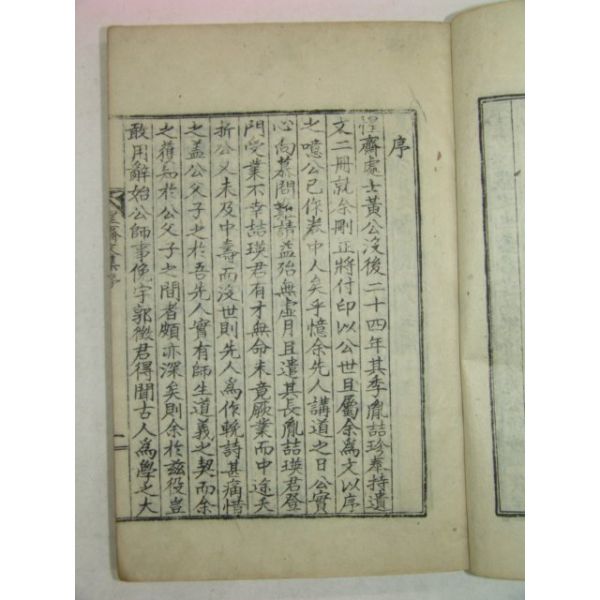 序
惺齋處士黃公沒後二十四年其季胤喆珍奉持遺
文二冊就余刪正將付印以公世且屬余爲文以序
之噫公已作卷中人矣乎憶余先人講道之日公實
心向慕問難請益殆無虛月且遣其長胤喆瑛君登
門受業不幸喆瑛君有才無命未竟厥業而中途夭
折公又未及中壽而沒世則先人爲作輓詩甚痛惜
之盖公父子之於吾先人實有師生道義之契而余
之獲私於公父子之間者頗亦深矣則余於玆役豈
敢用辭始公師事俛宇郭徵君得聞古人爲學之大
惺齋文集序
一